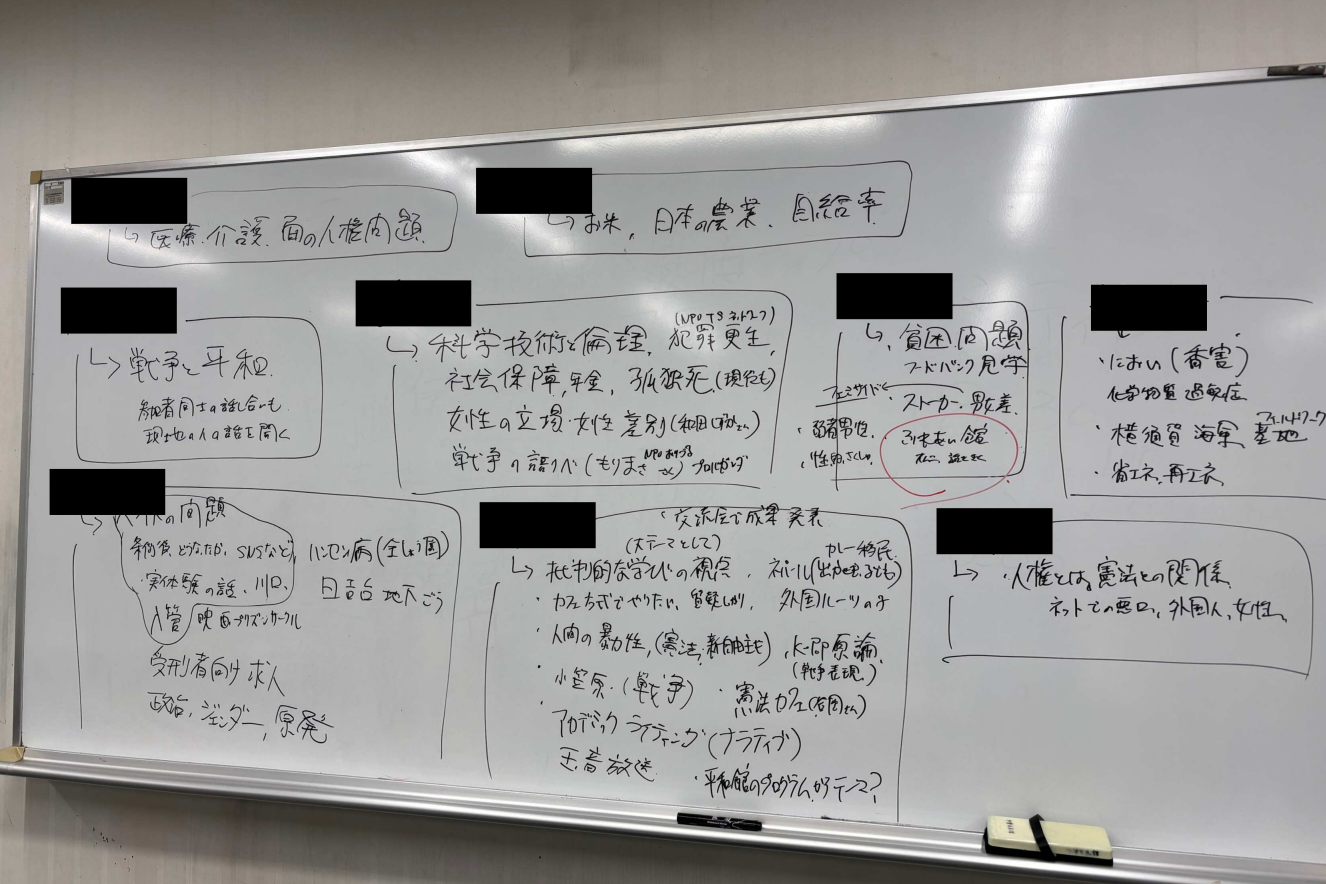 ↳医療・介護 面の人権問題
↳お米, 日本の農業, 自給率
↳戦争と平和
参加者同士の話し合いも
現地の人の話を聞く
↳科学技術と倫理, 犯罪更生,
社会保障, 年金, 孤独死,(現役も)
女性の立場・女性差別
戦争の語りべ(もりまささん) プロパガンダ
↳貧困問題
フードバンク見学
フェミサイド
ストーカー, 男女差
・弱者男性,
ふれあい館
・におい(香害)
化学物質過敏症
フィールドワーク
・横須賀 海軍 基地
・省エネ, 再エネ
の問題
SNSなど,
ハンセン病(全しょう園)
・実体験の話, 川口,
日吉 地下ごう
入管
映画プリズンサークル
受刑者向け求人
政治, ジェンダー, 原発
・交流会で成果発表
(大テーマとして)
↳批判的な学びの視点
カレー移民
・ネパール(出かせぎ, 子ども)
・カフェ方式でやりたい,
外国ルーツの子
・人間の暴力性,(憲法,新自由主も)
(戦争表現)
・小笠原,(戦争)
・憲法カフェ
アカデミック ライティング(ナラティブ)
玉音放送
・平和館のプログラムからテーマ?
↳・人権とは, 憲法との関係
ネットでの悪口, 外国人, 女性,